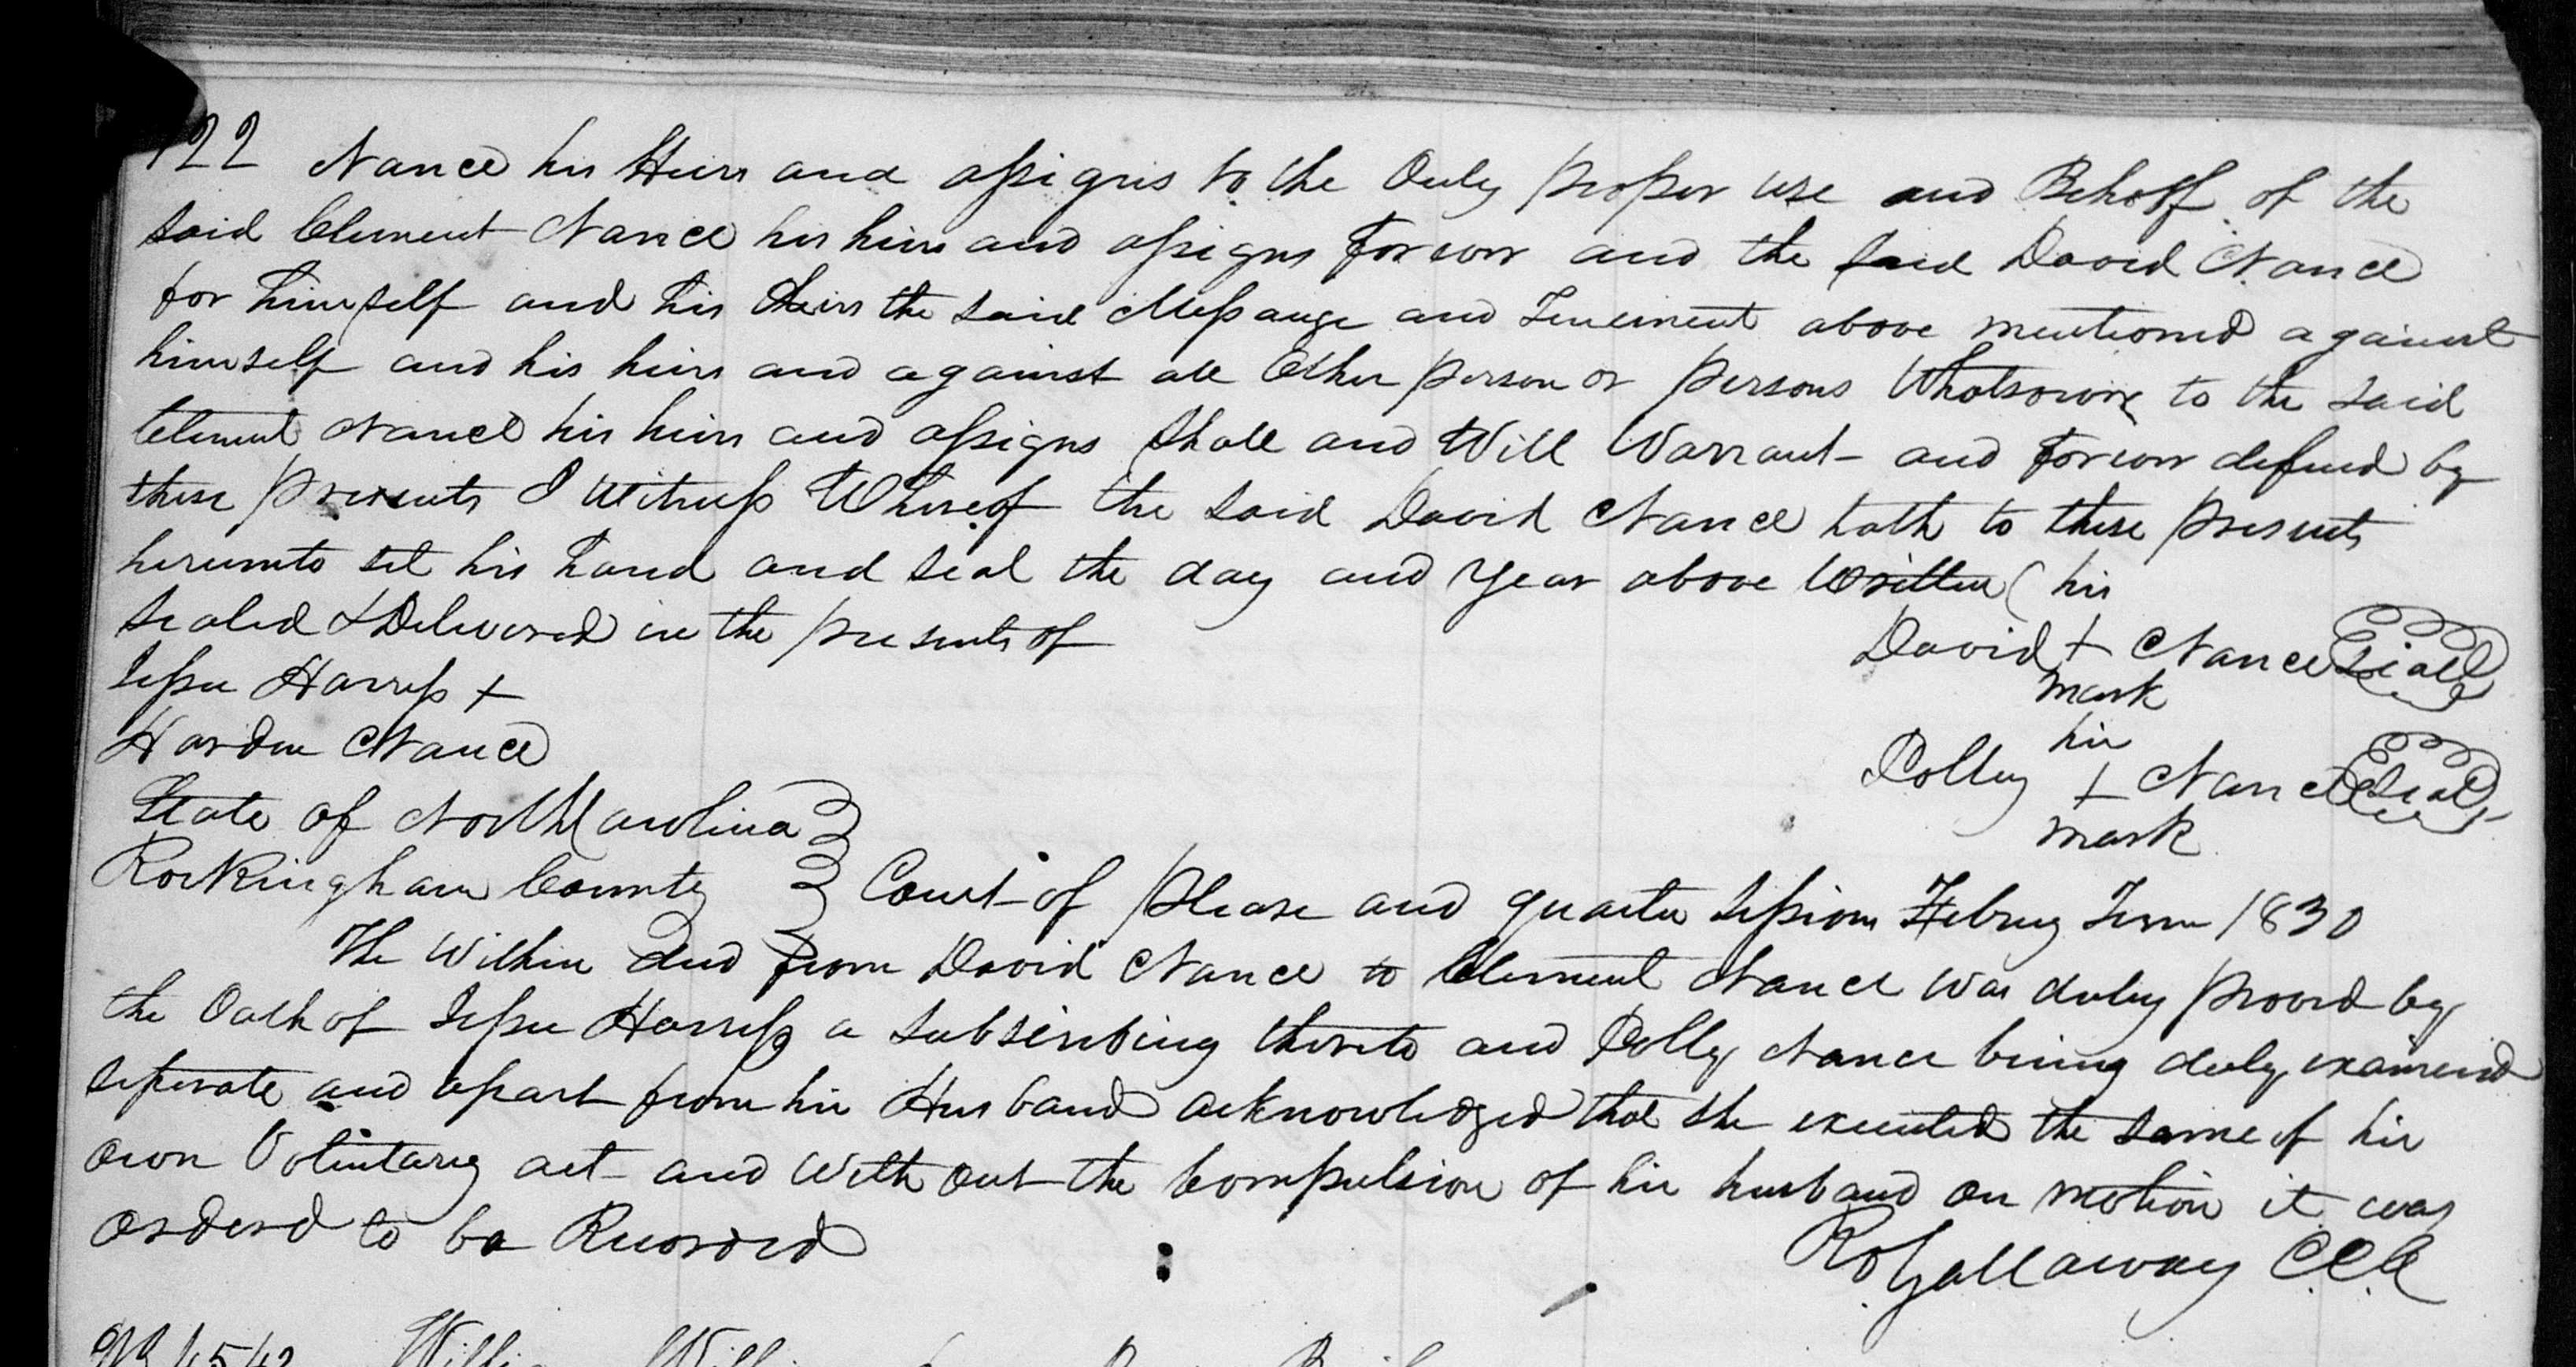 122 Nance his Heirs and assigns to the Only proper use and Beholf of the
said Clement Nance his heirs and assigns Forever and the said David Nance
for himself and his Heirs the said Messauge and Tenement above mentioned against
himself and his heirs and against all Other person or persons Whatsoever to the said
Clement Nance his heirs and assigns Shall and Will Warrant and Forever defend by
these presents I Witness Whereof the said David Nance hath to these presents
hereunto set his hand and seal the day and Year above Written ( his
Sealed & Delivered in the presents of
David + Nance Seal
mark
Jesse Harriss +
Harden Nance
her
Polley + Nance Seal
mark
State of North Carolina
Rockingham County } Court of Please and quarter Sessions Februy Term 1830
The Within deed from David Nance to Clement Nance was duley proved by
the Oath of Jesse Harriss a Subscribing thereto and Polley Nance being duley examined
seperate and apart from her Husband acknowledged that she executed the same of her
own Voluntary act and with out the Compulsion of her husband on motion it was
orderd to be Recorded
Ro Gallaway C.C.C